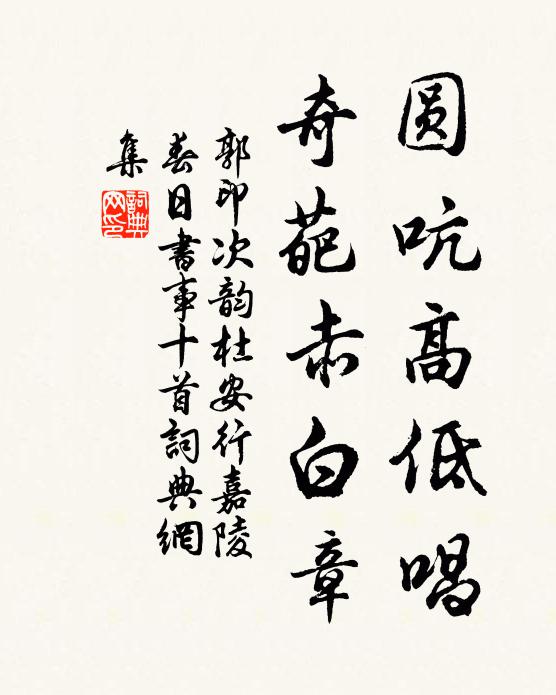 圆吭高低唱
奇葩赤白章
郭印次韵杜安行嘉陵
春日书事十首詞典網
集
詞典网印